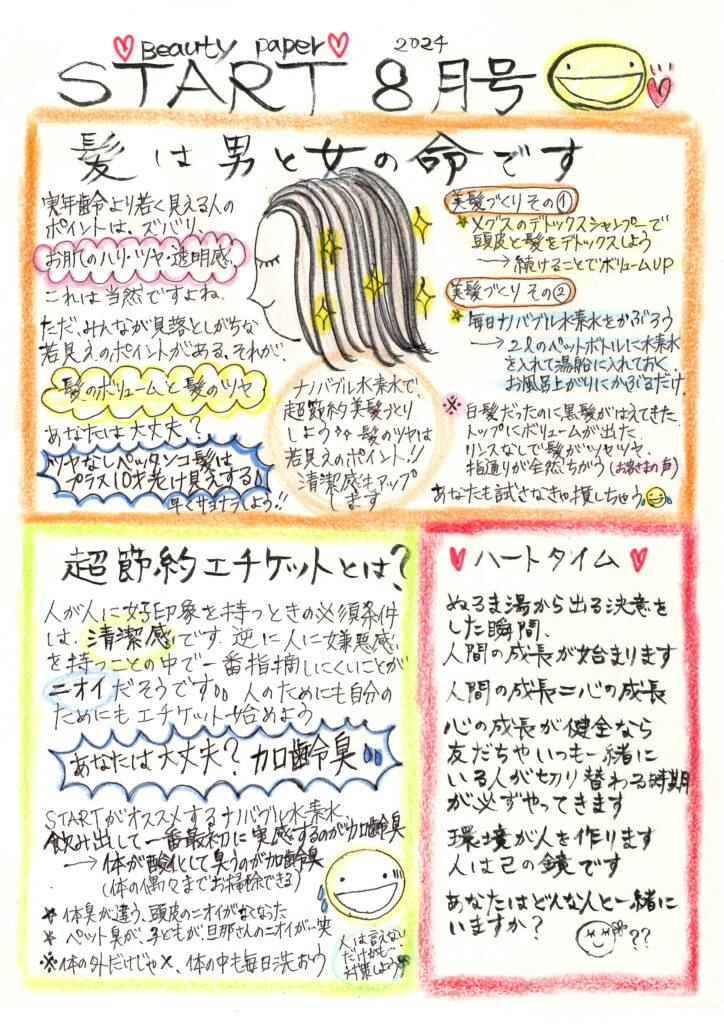 Beauty paper 2024
START 8月号
髪は男と女の命です
実年齢より若く見える人の
ポイントは、ズバリ、
お肌のハリ・ツヤ・透明感、
これは当然ですよね、
ただ、みんなが見落としがちな
若見えのポイントがある、それが、
髪のボリュームと髪のツヤ
あなたは大丈夫?
ツヤなしペッタンコ髪は
プラス10才老け見えする
早くサヨナラしよう!!
ナノバブル水素水で、
超節約美髪づくり
しよう 髪のツヤは
若見えのポイント!!
清潔感もアップ
します
美髪づくり その①
メグスのデトックスシャンプーで
頭皮と髪をデトックスしよう
→続けることでボリュームUP
美髪づくり その②
毎日ナノバブル水素水をかぶろう
→2Lのペットボトルに水素水
を入れて湯船に入れておく、
お風呂上がりにかぶるだけ、
※白髪だったのに黒髪がはえてきた、
トップにボリュームが出た、
リンスなしで髪がツヤツヤ
指通りが全然ちがう(お客さまの声)
あなたも試さなきゃ損しちゃう
超節約エチケットとは?
人が人に好印象を持つときの必須条件
は、清潔感です、逆に人に嫌悪感
を持つことの中で一番指摘しにくいことが
ニオイだそうです 人のためにも自分の
ためにもエチケット始めよう
あなたは大丈夫? 加齢臭
STARTがオススメするナノバブル水素水、
飲み出して一番最初に実感するのが加齢臭
→体が酸化して臭うのが加齢臭
(体の隅々までお掃除できる)
* 体臭が違う、頭皮のニオイがなくなった
* ペット臭が、子どもが、旦那さんのニオイが…笑
※体の外だけじゃ×、体の中も毎日洗おう
人は言えない
だけかも…
対策しよう
ハートタイム
ぬるま湯から出る決意を
した瞬間、
人間の成長が始まります
人間の成長=心の成長
心の成長が健全なら
友だちやいつも一緒に
いる人が切り替わる時期
が必ずやってきます
環境が人を作ります
人は己の鏡です
あなたはどんな人と一緒に
いますか?
??